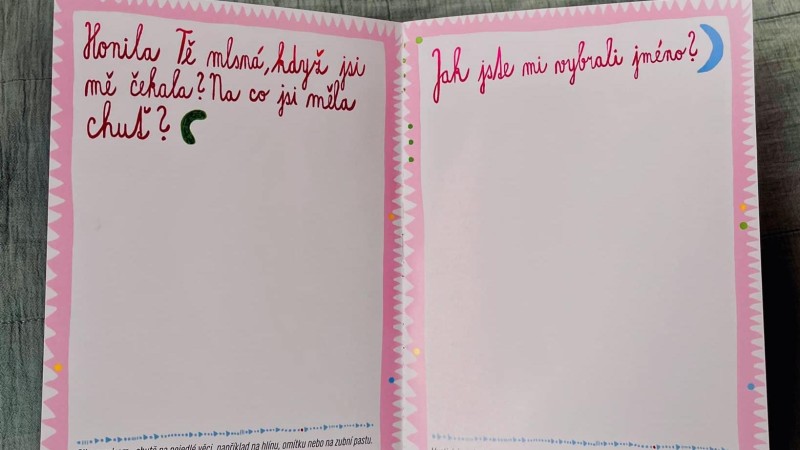 Honila Tě mlsná, když jsi
mě čekala? Na co jsi měla
chuť?
Jak jste mi vybrali jméno?
chutě na nejedlé věci, například na hlínu, omítku nebo na zubní pastu.